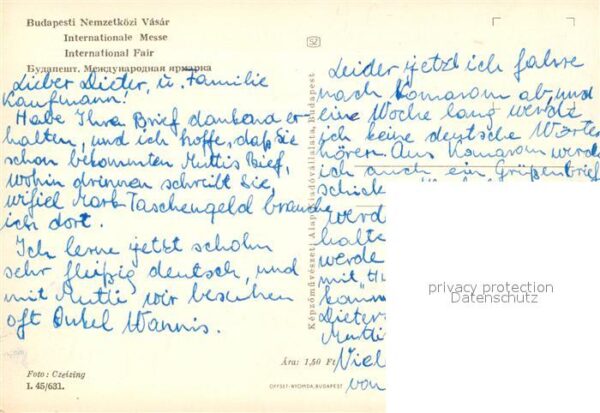 Budapesti Nemzetközi Vásár
Internationale Messe
International Fair
Будапешт. Международная ярмарка
Lieber Dieter, u. Familie
Kaufmann!
Habe Ihren Brief dankend er-
halten, und ich hoffe, daß Sie
schon bekommten Muttis Brief,
wohin drinnen schreibt Sie,
wifiel Mark Taschengeld brauche
ich dort.
Ich lerne jetzt schohn
sehr fleißig deutsch, und
mit Mutti wir besuchen
oft Onkel Wannis.
Foto: Czeizing
I. 45/631.
Képzőművészeti Alap Kiadóvállalata, Budapest
Ára: 1,50 Ft
OFFSET-NYOMDA, BUDAPEST
Leider jetzt ich fahre
nach Komarom ab, und
eine Woche lang werde
ich keine deutsche Wörter
hören. Aus Komarom werde
ich auch ein Grüßenbrief
schick
werd
halte
werde
mit
komm
Dieter
Mutti
Viel
von
privacy protection
Datenschutz